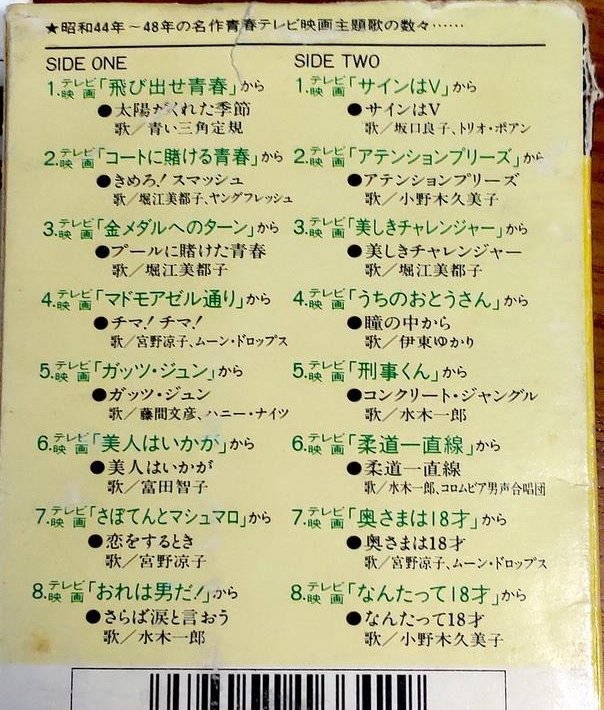 ★昭和44年～48年の名作青春テレビ映画主題歌の数々……
SIDE ONE
1.テレビ映画「飛び出せ青春」から
●太陽がくれた季節
歌／青い三角定規
2.テレビ映画「コートに賭ける青春」から
●きめろ！スマッシュ
歌／堀江美都子、ヤングフレッシュ
3.テレビ映画「金メダルへのターン」から
●プールに賭けた青春
歌／堀江美都子
4.テレビ映画「マドモアゼル通り」から
●チマ！チマ！
歌／宮野凉子、ムーン・ドロップス
5.テレビ映画「ガッツ・ジュン」から
●ガッツ・ジュン
歌／藤間文彦、ハニー・ナイツ
6.テレビ映画「美人はいかが」から
●美人はいかが
歌／富田智子
7.テレビ映画「さぼてんとマシュマロ」から
●恋をするとき
歌／宮野凉子
8.テレビ映画「おれは男だ！」から
●さらば涙と言おう
歌／水木一郎
SIDE TWO
1.テレビ映画「サインはV」から
●サインはV
歌／坂口良子、トリオ・ポアン
2.テレビ映画「アテンションプリーズ」から
●アテンションプリーズ
歌／小野木久美子
3.テレビ映画「美しきチャレンジャー」から
●美しきチャレンジャー
歌／堀江美都子
4.テレビ映画「うちのおとうさん」から
●瞳の中から
歌／伊東ゆかり
5.テレビ映画「刑事くん」から
●コンクリート・ジャングル
歌／水木一郎
6.テレビ映画「柔道一直線」から
●柔道一直線
歌／水木一郎、コロムビア男声合唱団
7.テレビ映画「奥さまは18才」から
●奥さまは18才
歌／宮野凉子、ムーン・ドロップス
8.テレビ映画「なんたって18才」から
●なんたって18才
歌／小野木久美子